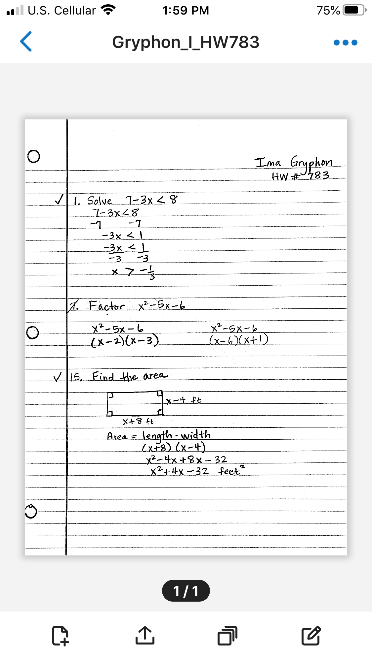 U.S. Cellular 1:59 PM 75%
Gryphon_I_HW783
Ima Gryphon
HW # 783
✓ 1. Solve 7-3x < 8
7-3x<8
-7 -7
-3x < 1
-3x < 1
-3 -3
x > -1/3
2. Factor x²-5x-6
x²-5x-6 x²-5x-6
(x-2)(x-3) (x-6)(x+1)
✓ 15. Find the area
x-4 ft
x+8 ft
Area = length · width
(x+8)(x-4)
x²-4x+8x-32
x²+4x-32 feet²
1/1